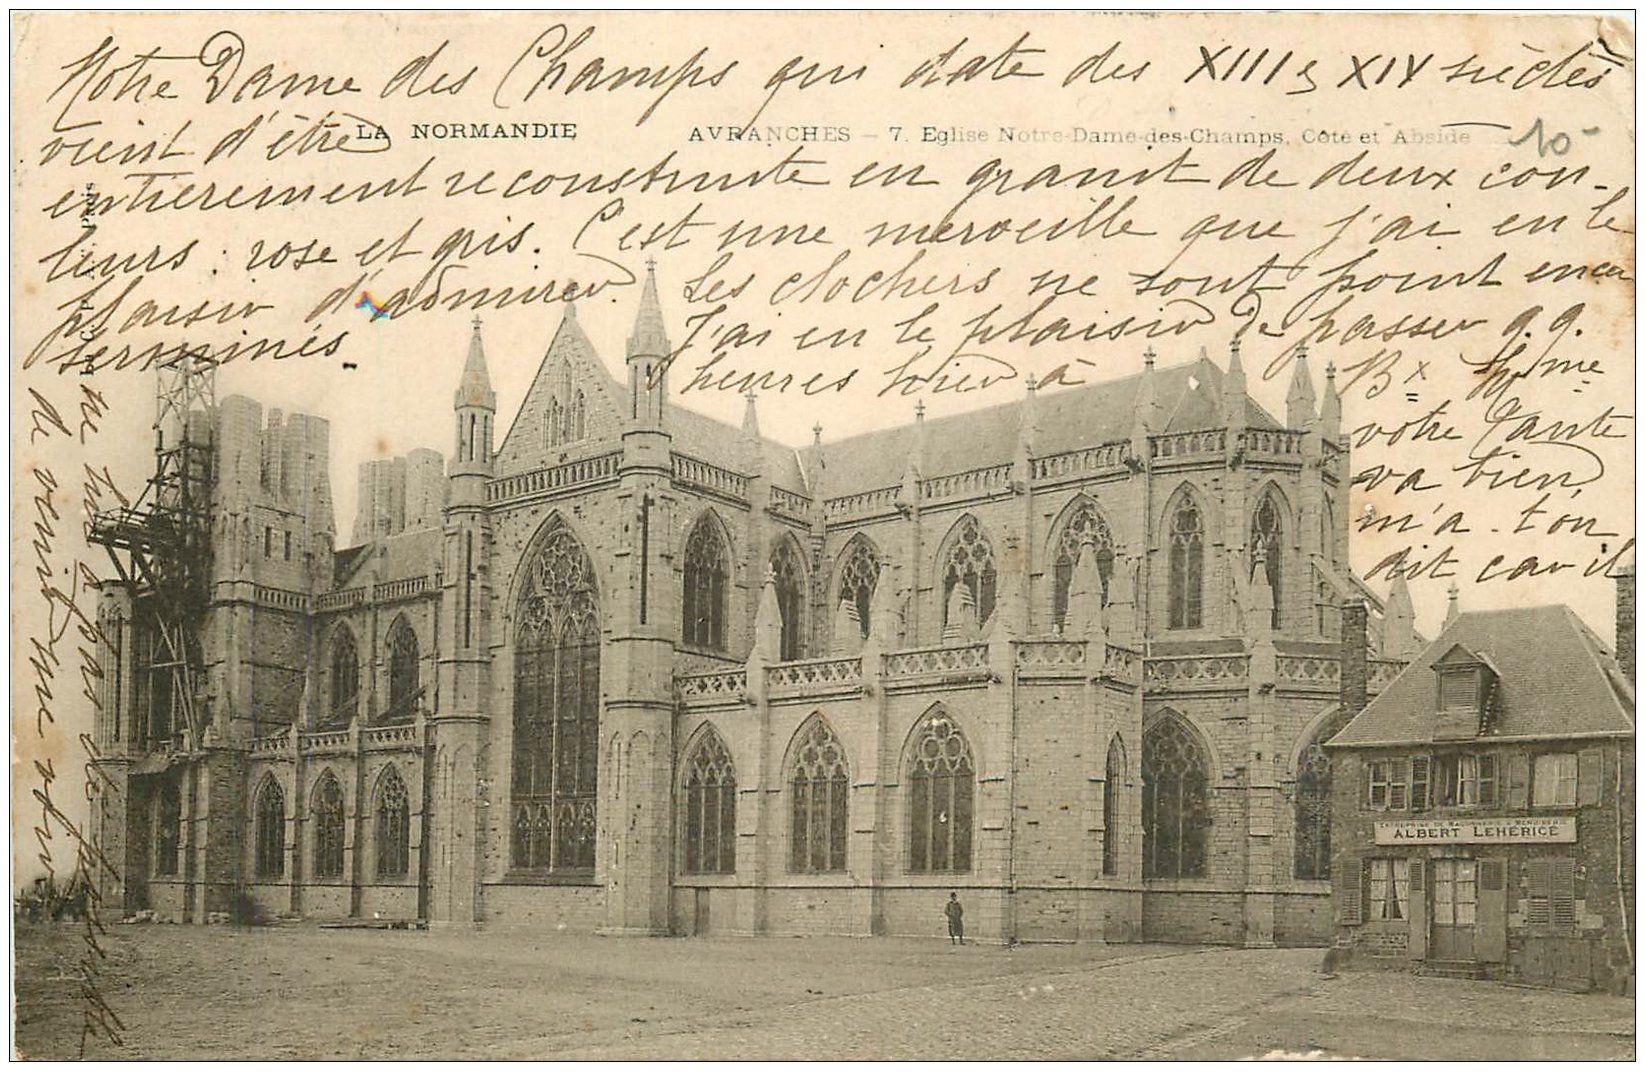 Notre Dame des Champs qui date des XIII & XIV siècles
LA NORMANDIE
AVRANCHES - 7. Eglise Notre-Dame-des-Champs, Côté et Abside
10-
vient d'être
entièrement reconstruite en granit de deux cou-
leurs : rose et gris. C'est une merveille que j'ai eu le
plaisir d'admirer. Les clochers ne sont point encor
terminés.
J'ai eu le plaisir de passer q.q.
heures hier à
Bx
votre Tante
va bien,
m'a-t-on
dit car il
ne lui a pas été possible
de venir me voir
ENTREPRISE DE MAÇONNERIE & MENUISERIE
ALBERT LEHÉRICÉ